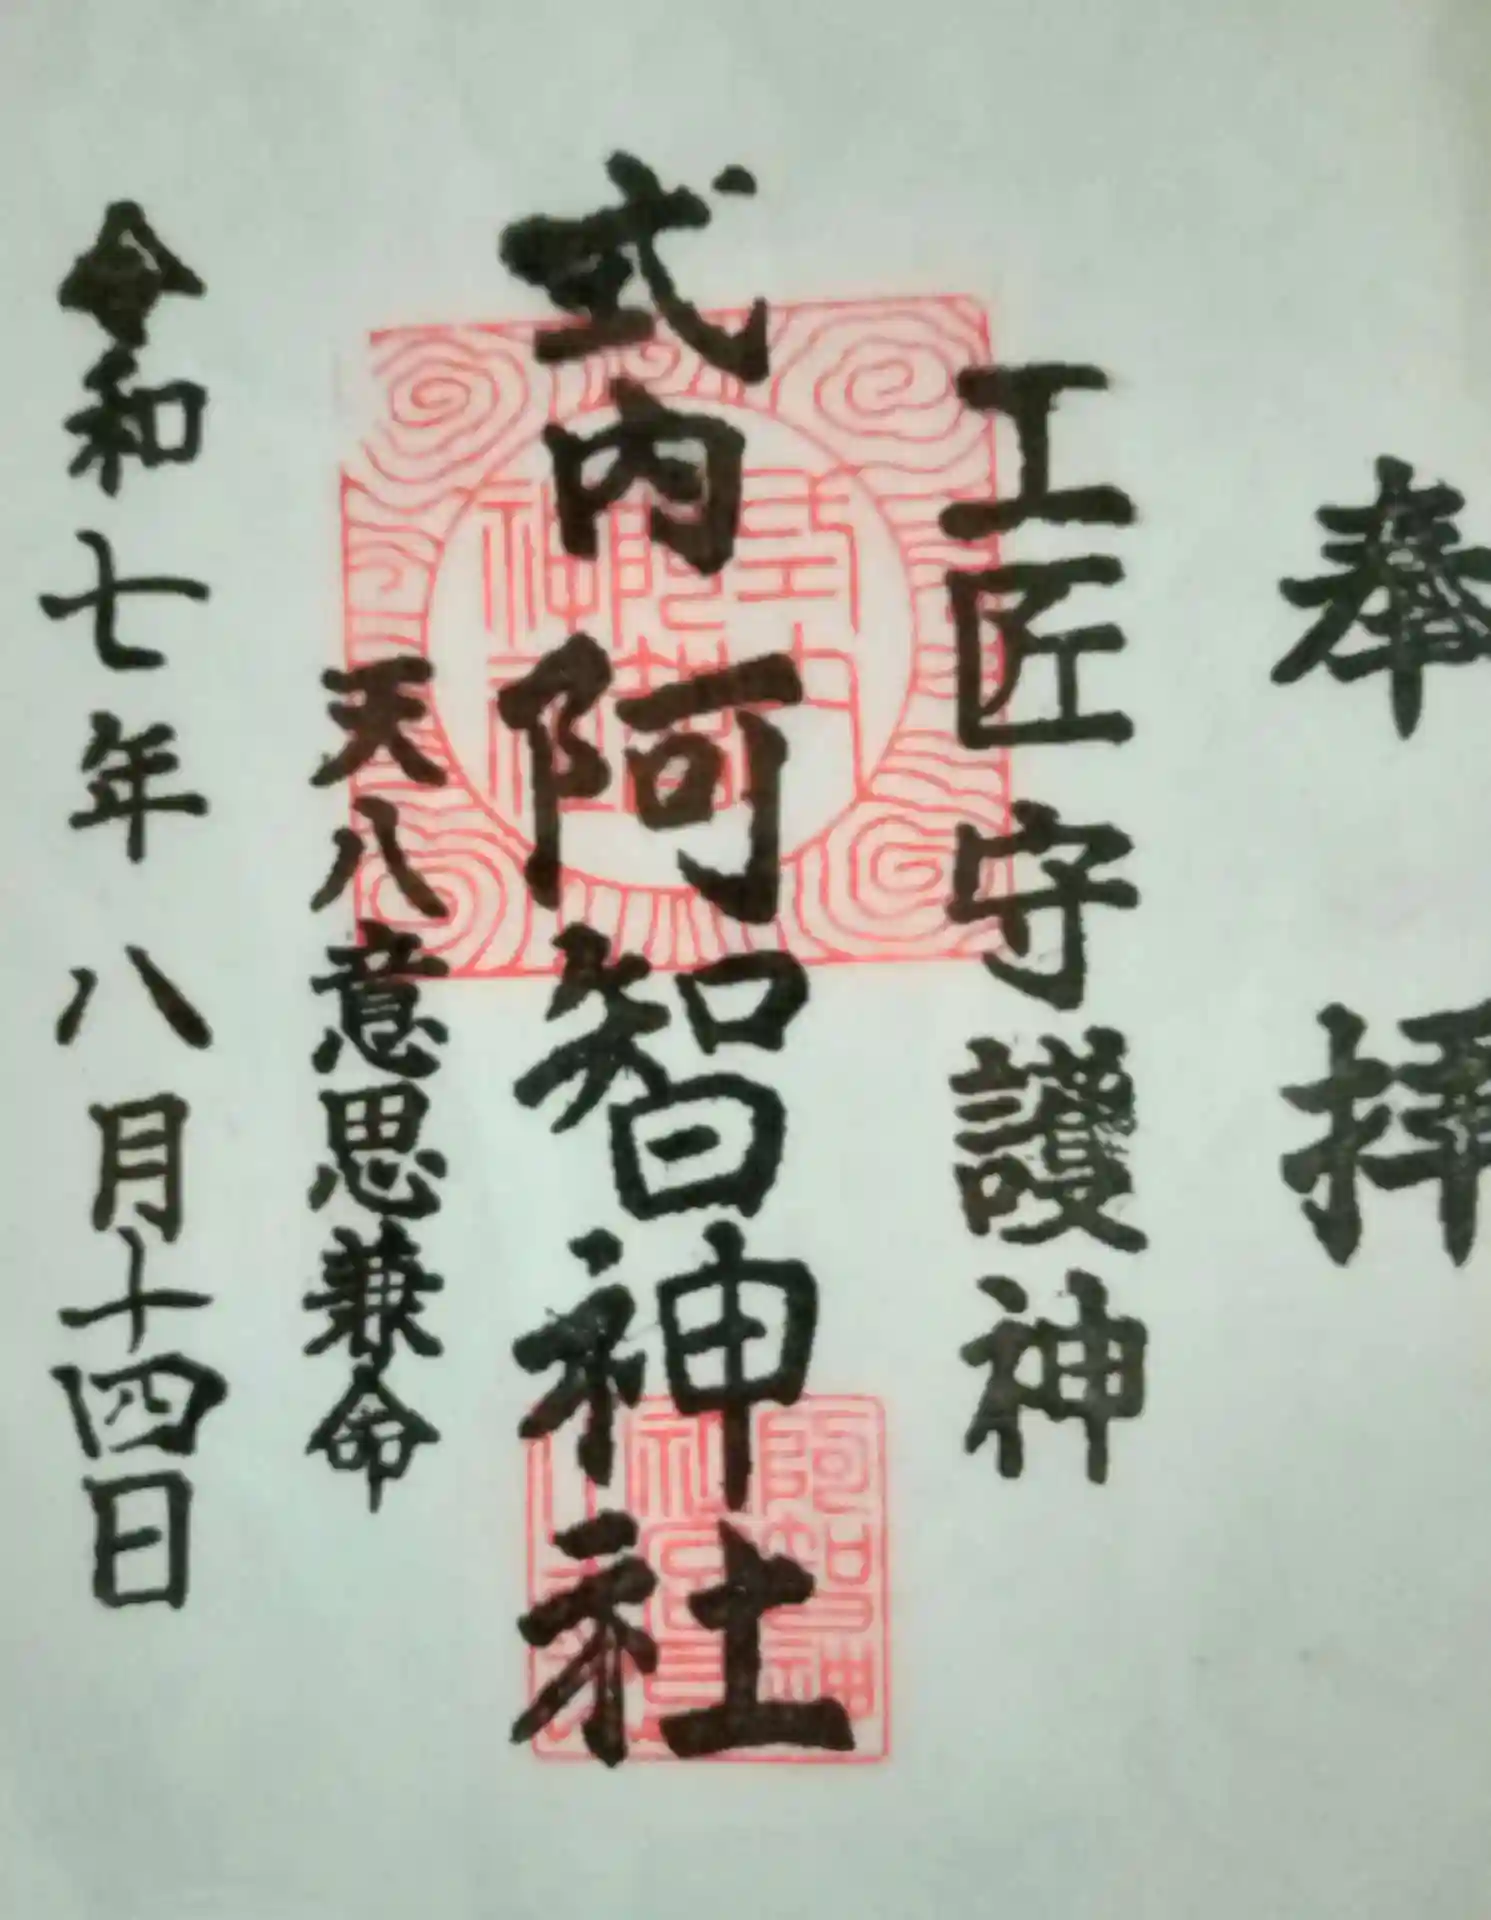 奉拝
工匠守護神
式内阿智神社
天八意思兼命
令和七年八月十四日